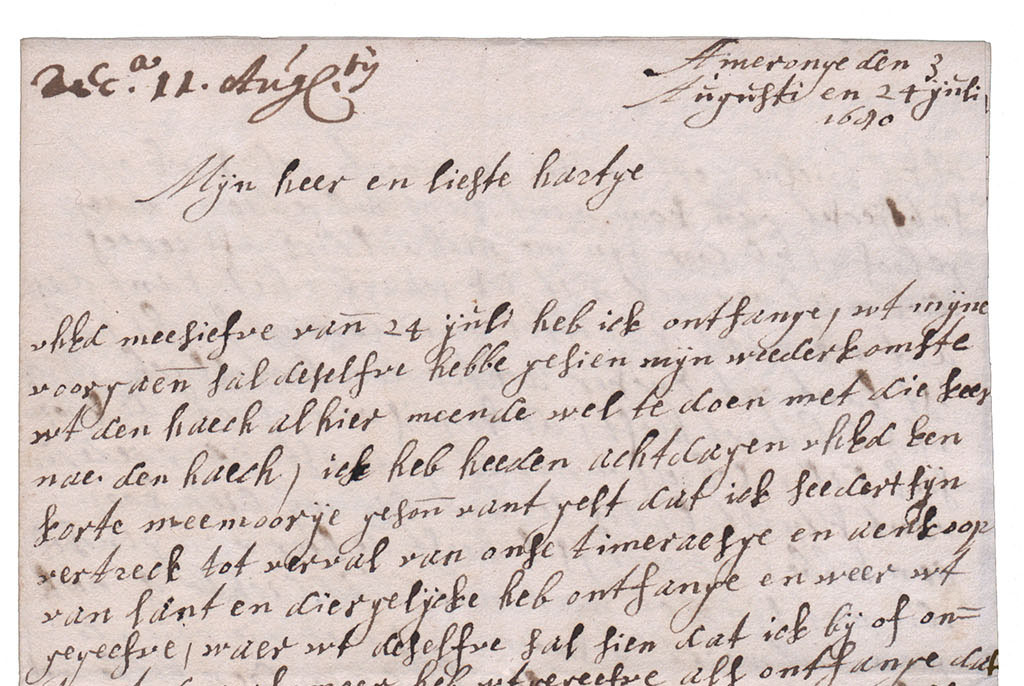 Rec.a 11. Augs.ty
Ameronge den 3
Augusti en 24 juli
1680
Mijn heer en liefste hartge
uhEd meesiefve vann 24 juli heb ick ontfange, wt mijne
voorgaenn sal deselfve hebbe gesien mijn wederkomste
wt den haech alhier meende wel te doen met die keer
nae den haech, ick heb heeden achtdagen uhEd een
korte meemoorije gesonn vant gelt dat ick seedert sijn
vertreck tot verval van onse timeraesge en aenkoop
van lant en diergelijcke heb ontfange en weer wt
gegeefve, waer wt deselfve sal sien dat ick bij of om
meer heb wtgegeefve als ontfange dat